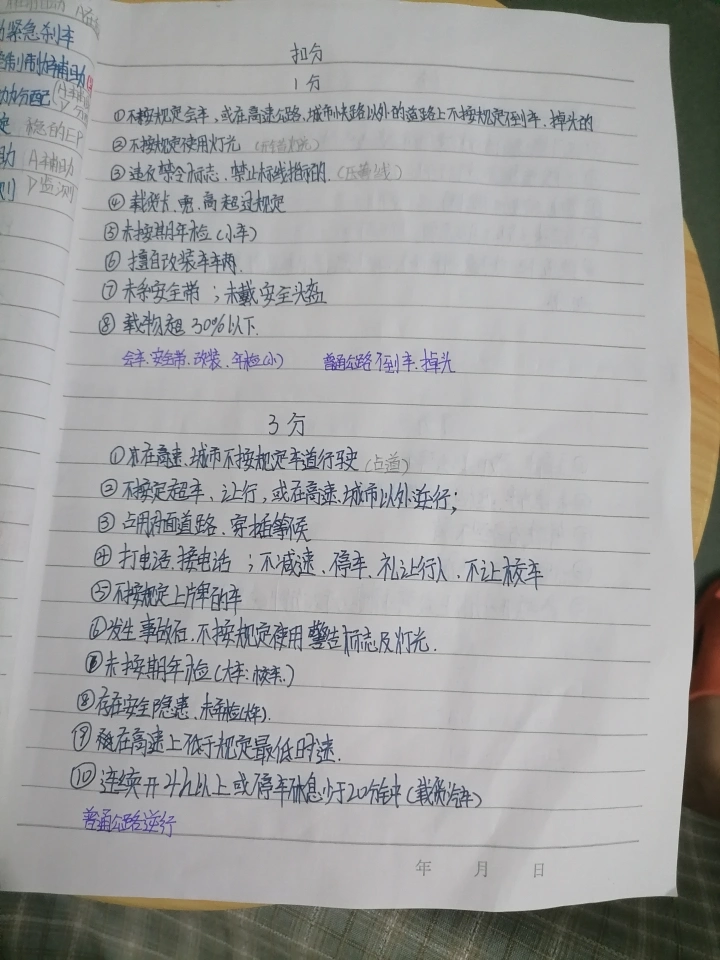 紧急刹车
制制动辅助
分配
扣分
1分
①不按规定会车，或在高速公路、城市快速路以外的道路上不按规定倒车、掉头的
②不按规定使用灯光
③违反禁令标志、禁止标线指示的.(压着线)
④载货长、宽、高超过规定
⑤未按期年检(小车)
⑥擅自改装车辆.
⑦未系安全带；未戴安全头盔
⑧载物超30%以下.
会车.安全带.改装.年检(小) 普通公路倒车.掉头
3分
①在高速、城市不按规定车道行驶(占道)
②不按定超车、让行,或在高速、城市以外逆行;
③占用对面道路、穿插等候
④打电话、接电话；不减速、停车、礼让行人、不让校车
⑤不按规定上片牌的车
⑥发生事故后、不按规定使用警告标志及灯光.
⑦未按期年检(大车:校车.)
⑧存在安全隐患、未年检(校车).
⑨在高速上低于规定最低时速.
⑩连续开4h以上或停车休息少于20分钟(载货汽车)
普通公路逆行
年 月 日
A辅助
D监测